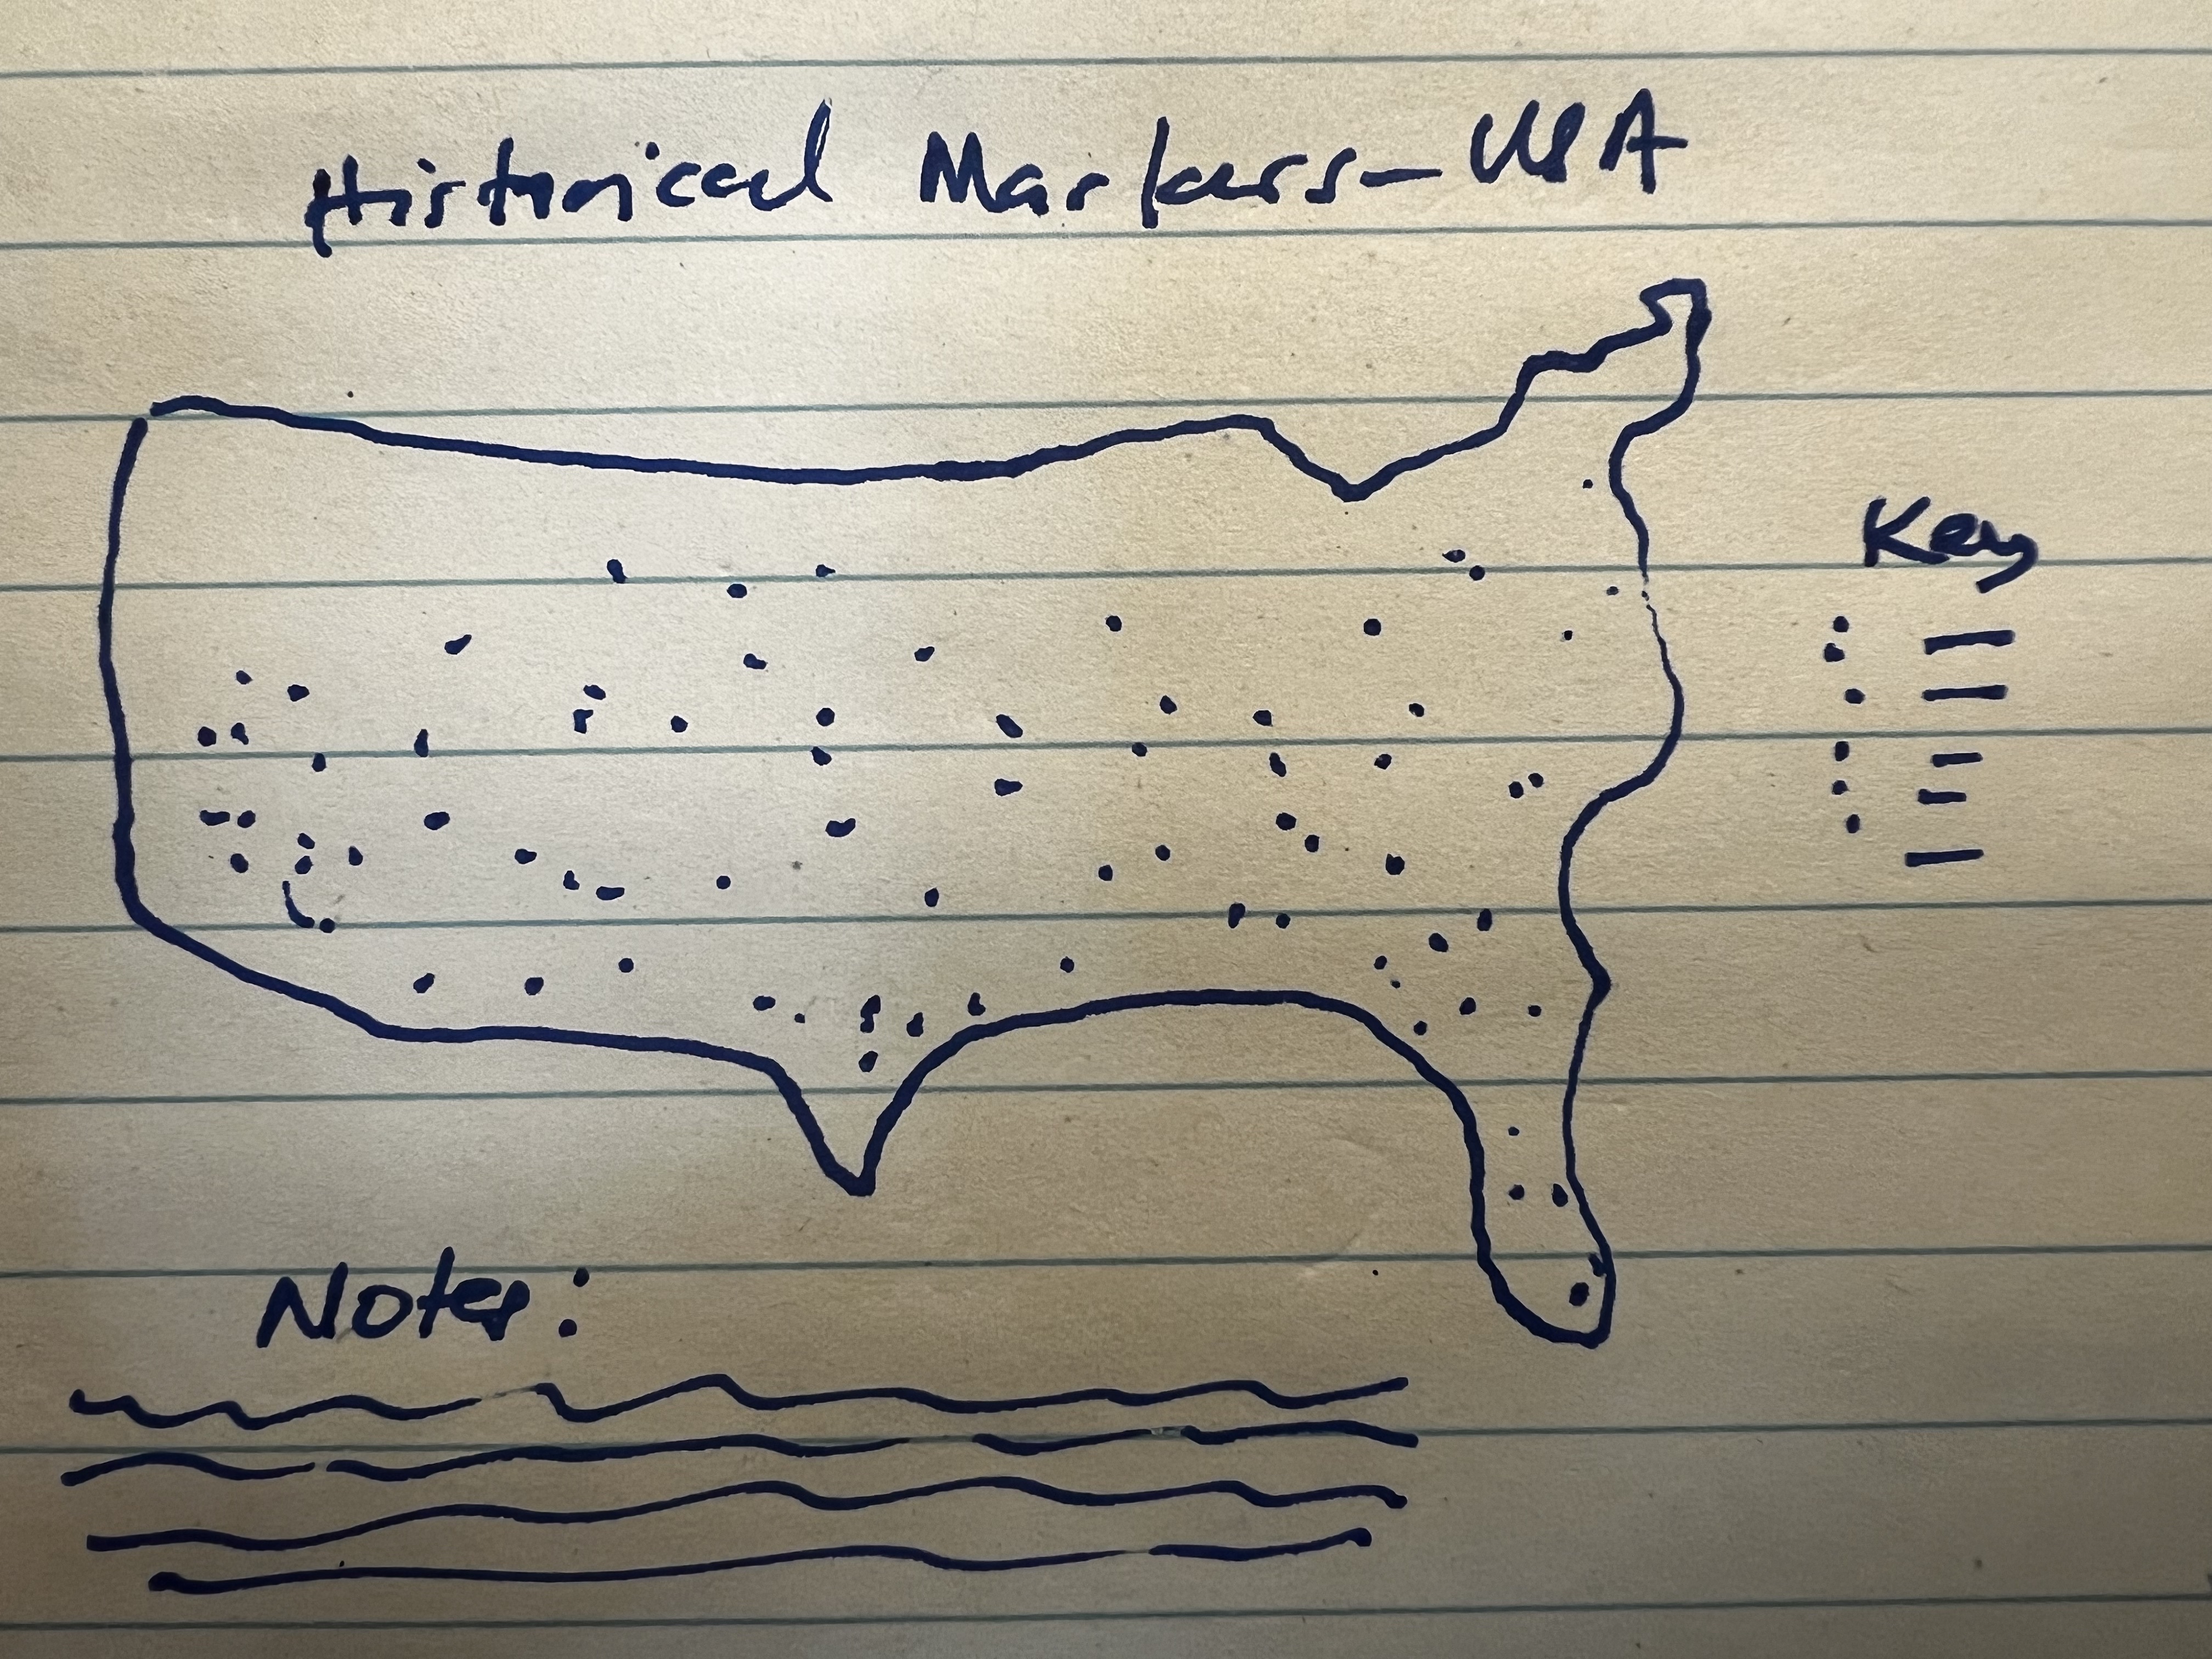 Historical Markers - USA
Key
Notes: